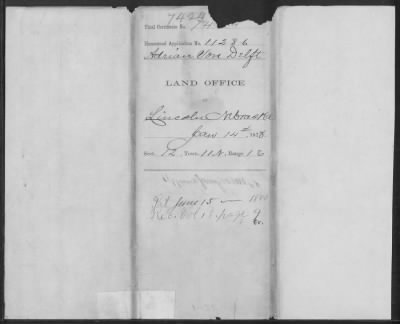 7424
Final Certificate No.
Homestead Application No. 11236
Adrian Von Delft
LAND OFFICE
Lincoln Nebraska
Jan 14th 1878
Sect. 12, Town. 11 N, Range. 1 E
June 15 — 1880
Rec. Vol 18, page 9